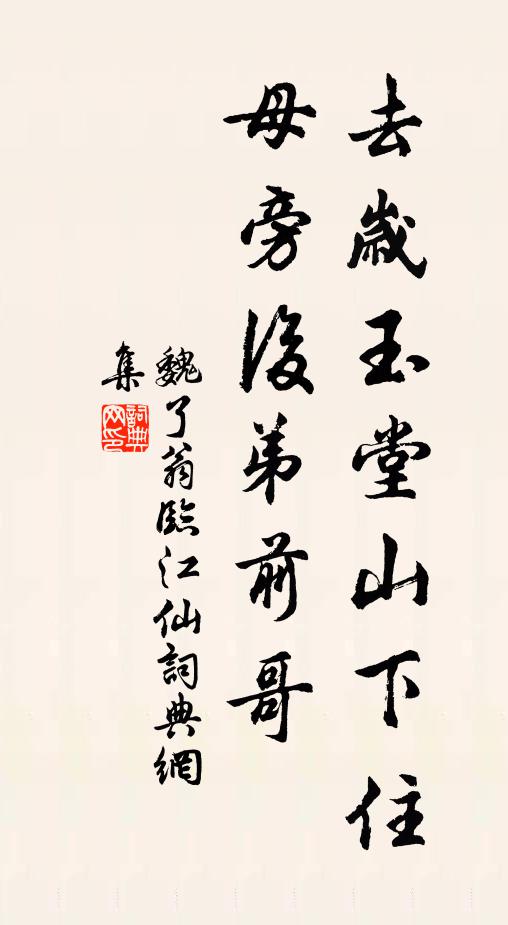 去歲玉堂山下住
母旁後弟前哥
魏了翁臨江仙詞典網
集
詞典网印